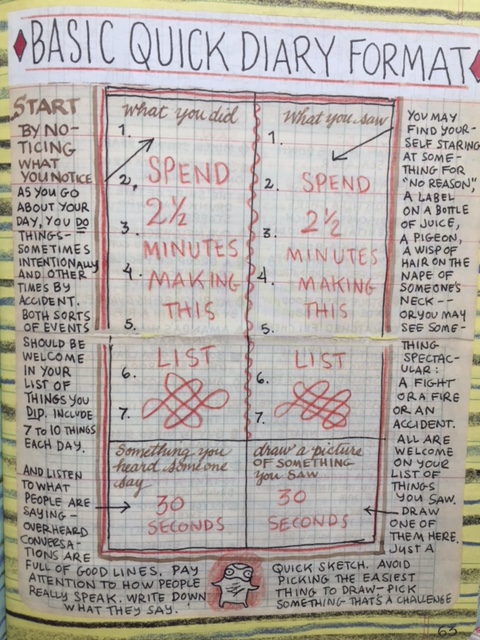 BASIC QUICK DIARY FORMAT
START
BY NO-
TICING
WHAT
YOU NOTICE
AS YOU GO
ABOUT YOUR
DAY, YOU DO
THINGS—
SOMETIMES
INTENTIONALLY
AND OTHER
TIMES BY
ACCIDENT.
BOTH SORTS
OF EVENTS
SHOULD BE
WELCOME
IN YOUR
LIST OF
THINGS YOU
DID. INCLUDE
7 TO 10 THINGS
EACH DAY.
AND LISTEN
TO WHAT
PEOPLE ARE
SAYING—
OVERHEARD
CONVERSA-
TIONS ARE
FULL OF GOOD LINES, PAY
ATTENTION TO HOW PEOPLE
REALLY SPEAK. WRITE DOWN
WHAT THEY SAY.
What you did
1.
2.
3.
4.
5.
6.
7.
SPEND
2½
MINUTES
MAKING
THIS
LIST
Something you
heard someone
say
30
SECONDS
What you saw
1.
2.
3.
4.
5.
6.
7.
SPEND
2½
MINUTES
MAKING
THIS
LIST
draw a picture
OF SOMETHING
YOU SAW
30
SECONDS
YOU MAY
FIND YOUR-
SELF STARING
AT SOME-
THING FOR
"NO REASON",
A LABEL
ON A BOTTLE
OF JUICE,
A PIGEON,
A WISP OF
HAIR ON THE
NAPE OF
SOMEONE'S
NECK--
OR YOU MAY
SEE SOME-
THING
SPECTAC-
ULAR:
A FIGHT
OR A FIRE
OR AN
ACCIDENT.
ALL ARE
WELCOME
ON YOUR
LIST OF
THINGS
YOU SAW.
DRAW
ONE OF
THEM HERE.
JUST A
QUICK SKETCH. AVOID
PICKING THE EASIEST
THING TO DRAW—PICK
SOMETHING THAT'S A CHALLENGE
63